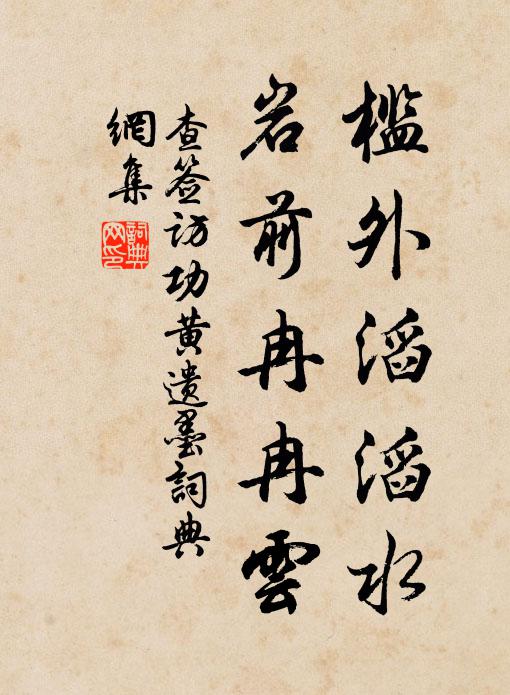 檻外滔滔水
岩前冉冉雲
查签访功黄遗墨詞典
網集
詞典
网印